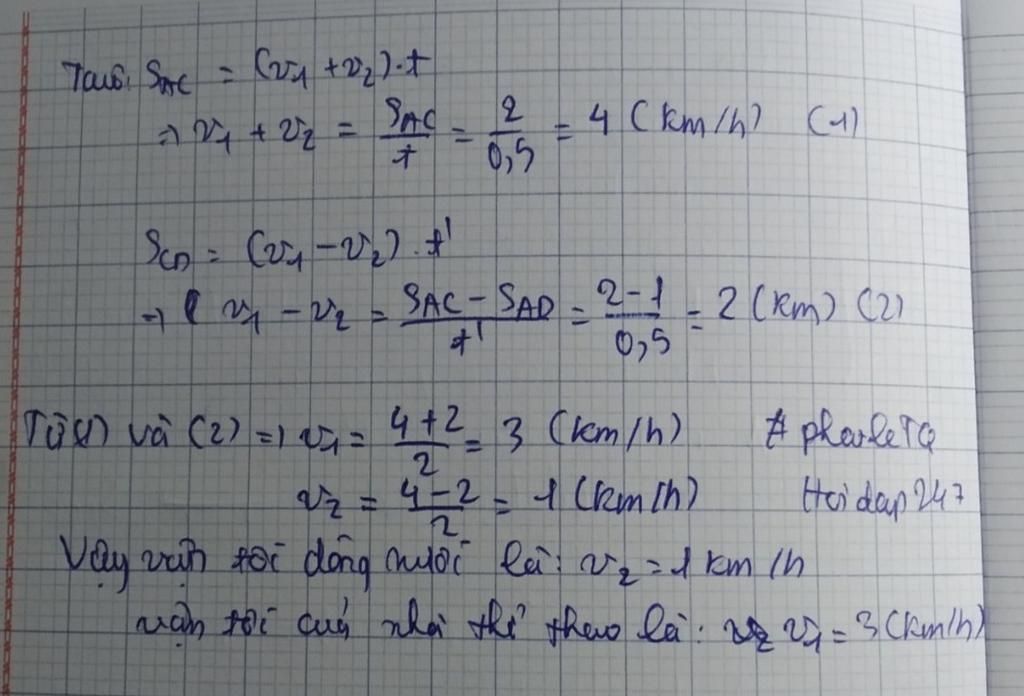 Ta có: S_AC = (v₁ + v₂).t
⇒ v₁ + v₂ = S_AC/t = 2/0,5 = 4 (km/h) (1)
S_CD = (v₁ - v₂).t'
⇒ v₁ - v₂ = (S_AC - S_AD)/t' = (2-1)/0,5 = 2 (km) (2)
Từ (1) và (2) ⇒ v₁ = (4+2)/2 = 3 (km/h) # pharleTQ
v₂ = (4-2)/2 = 1 (km/h) Hoidap247
Vậy vận tốc dòng nước là: v₂ = 1 km/h
vận tốc của nhà thể thao là: v₁ = 3 (km/h)